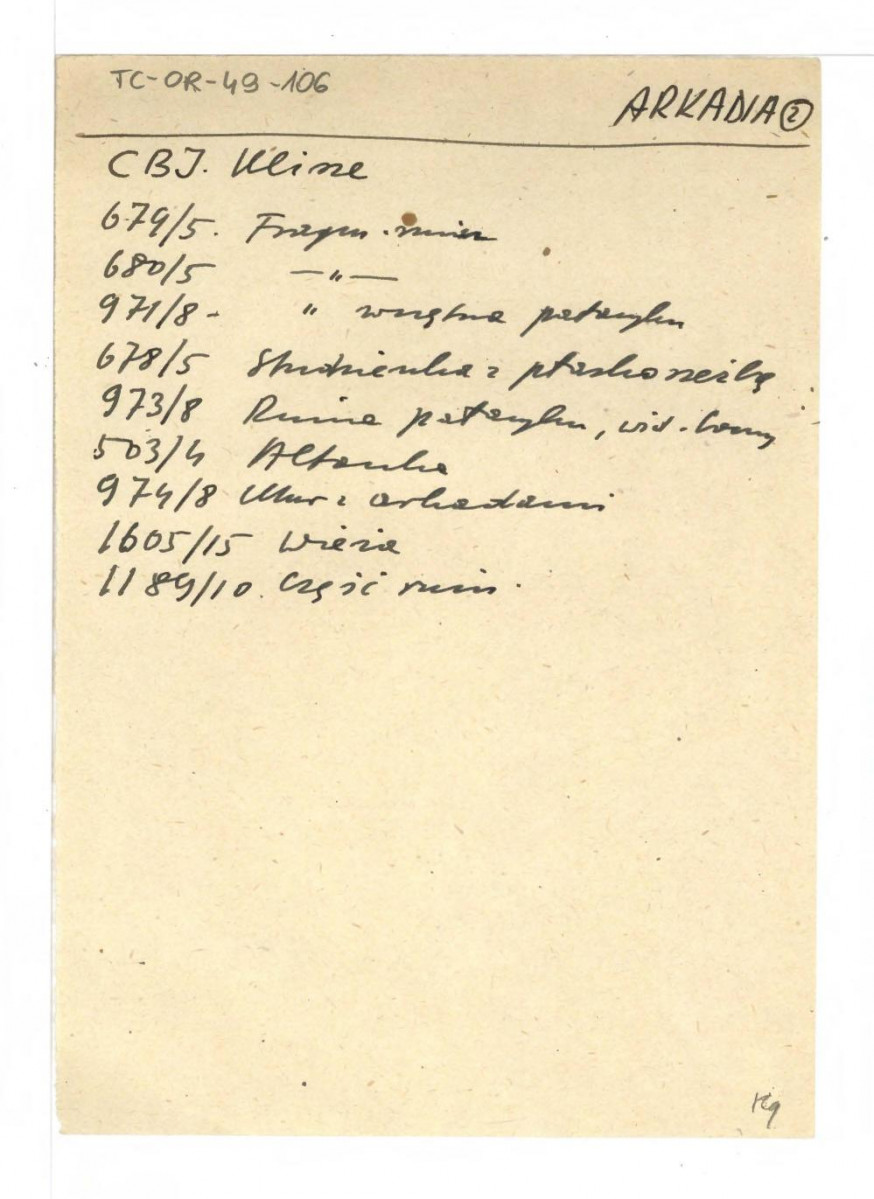 TC-OR-49-106
ARKADIA 2
CBI. Klisze
679/5. Fragm. ruin
680/5 —"—
971/8 - " wnętrza pałacyku
678/5 Studzienka z płaskorzeźbą
973/8 Ruina pałacyku, wid.
503/4 Altanka
974/8 Mur z arkadami
1605/15 Wieża
1189/10. Część ruin.
Kg